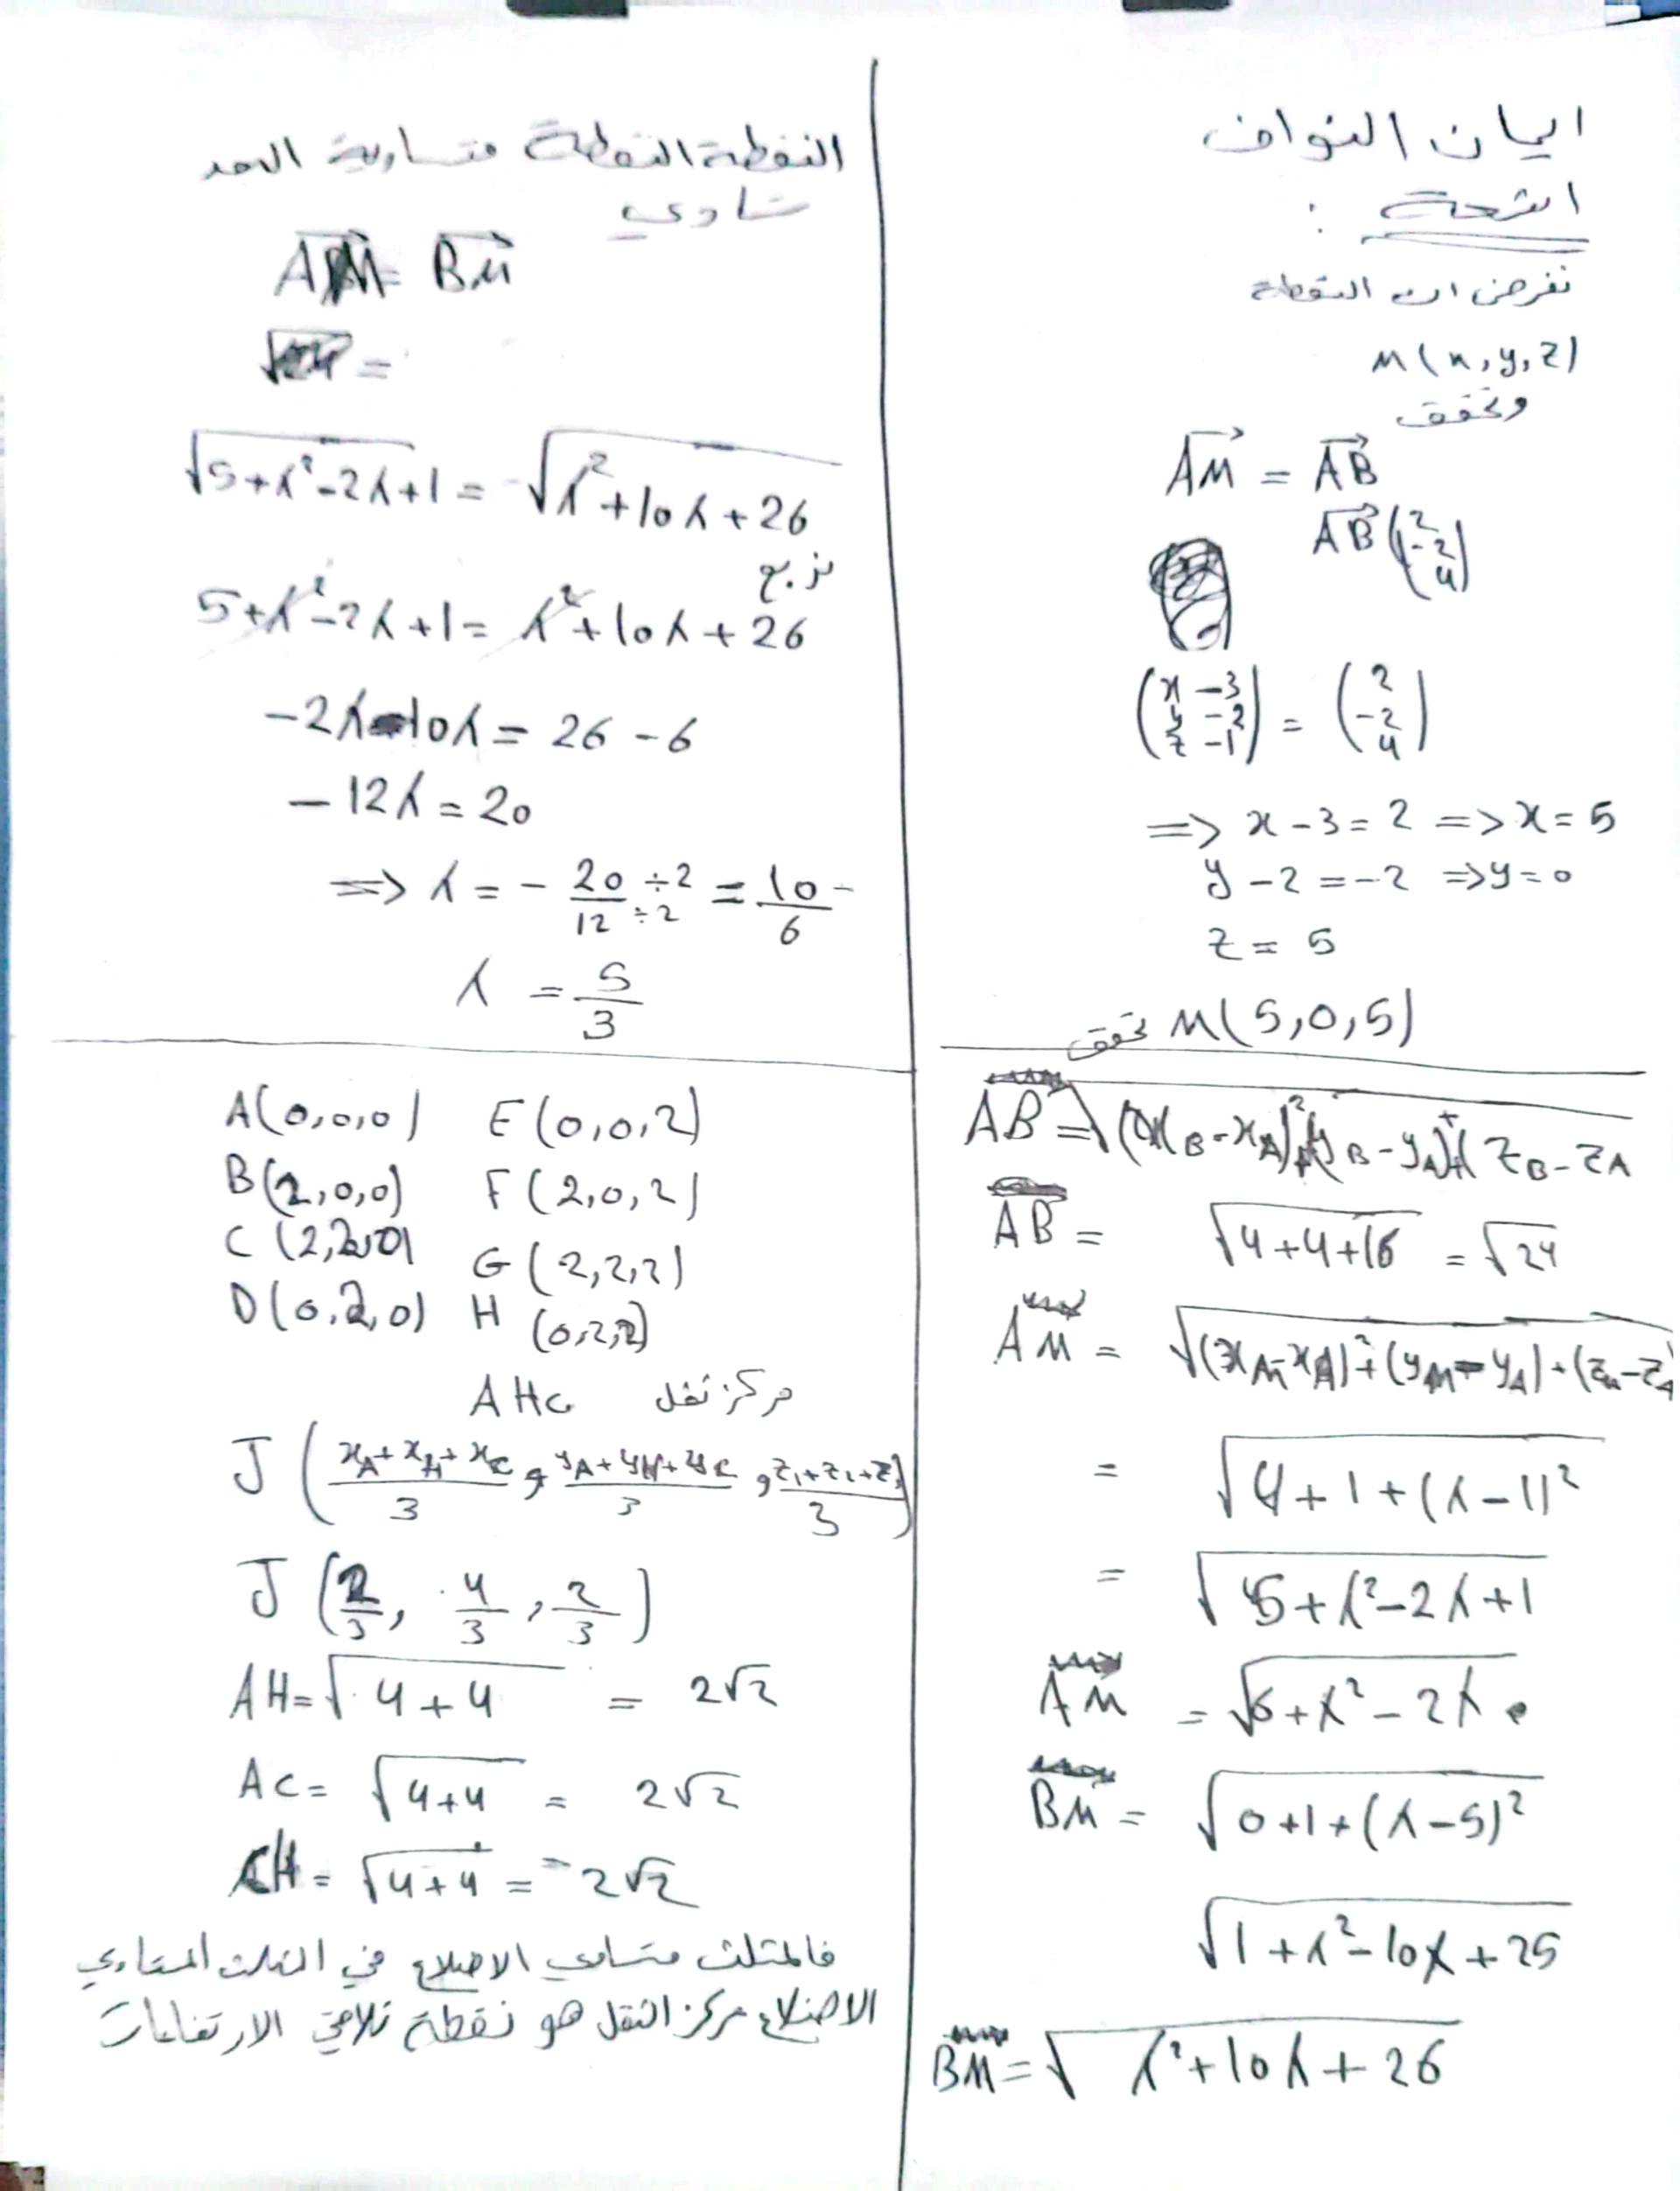 ايان النواف
اتحة :
نفرض ان النقطة
M(x,y,z)
وتحقق
AM = AB
AB (2 -2 4)
(x-3 y-2 z-1) = (2 -2 4)
=> x-3=2 => x=5
y-2=-2 => y=0
z=5
M(5,0,5) تحقق
AB = √(x_B-x_A)²+(y_B-y_A)+(z_B-z_A
AB = √4+4+16 = √24
AM = √(x_M-x_A)²+(y_M-y_A)+(z_M-z_A)
= √4+1+(λ-1)²
= √5+λ²-2λ+1
AM = √6+λ²-2λ
BM = √0+1+(λ-5)²
√1+λ²-10λ+25
BM = √λ²+10λ+26
النقطة النقطة متساوية البعد
تساوي
AM = BM
=
√5+λ²-2λ+1 = √λ²+10λ+26
نربع
5+λ²-2λ+1 = λ²+10λ+26
-2λ-10λ = 26-6
-12λ = 20
=> λ = - 20÷2/12÷2 = 10-/6
λ = 5/3
A(0,0,0) E(0,0,2)
B(2,0,0) F(2,0,2)
C(2,2,0) G(2,2,2)
D(0,2,0) H(0,2,2)
مركز ثقل AHC
J(x_A+x_H+x_C/3 , y_A+y_H+y_C/3 , z_1+z_2+z_3/3)
J(2/3, 4/3, 2/3)
AH = √4+4 = 2√2
AC = √4+4 = 2√2
CH = √4+4 = 2√2
فالمثلث متساوي الاضلاع في المثلث المتساوي
الاضلاع مركز الثقل هو نقطة تلاقي الارتفاعات